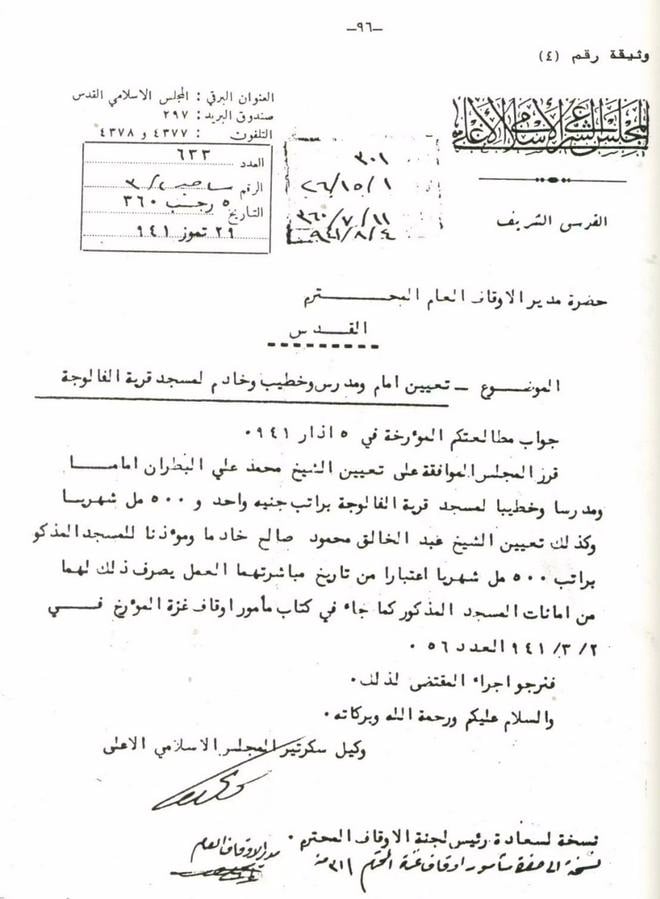 -٩٦-
وثيقة رقم (٤)
المجلس الشرعي الإسلامي الأعلى
القدس الشريف
العنوان البرقي : المجلس الاسلامي القدس
صندوق البريد : ٢٩٧
التلفون : ٤٣٧٧ و ٤٣٧٨
العدد ٦٣٣
الرقم
التاريخ ٥ رجب ٣٦٠
٢٩ تموز ٩٤١
٣٠١
٢٦/١٥/١
٣٦٠/٧/١١
٩٤١/٨/٤
حضرة مدير الاوقاف العام المحترم
القدس
الموضوع - تعيين امام ومدرس وخطيب وخادم لمسجد قرية الفالوجة
جواب مطالعتكم المؤرخة في ٥ اذار ٩٤١٠
قرر المجلس الموافقة على تعيين الشيخ محمد علي البطران اماما
ومدرسا وخطيبا لمسجد قرية الفالوجة براتب جنيه واحد و ٥٠٠ مل شهريا
وكذلك تعيين الشيخ عبد الخالق محمود صالح خادما ومؤذنا للمسجد المذكو
براتب ٥٠٠ مل شهريا اعتبارا من تاريخ مباشرتهما العمل يصرف ذلك لهما
من امانات المسجد المذكور كما جاء في كتاب مأمور اوقاف غزة المؤرخ في
٩٤١/٣/٢ العدد ٥٦ ٠
فنرجو اجراء المقتضى لذلك٠
والسلام عليكم ورحمة الله وبركاته٠
وكيل سكرتير المجلس الاسلامي الاعلى
نسخة لسعادة رئيس لجنة الاوقاف المحترم ٠
نسخة الى حضرة مأمور اوقاف غزة المحترم
مدير الاوقاف العام